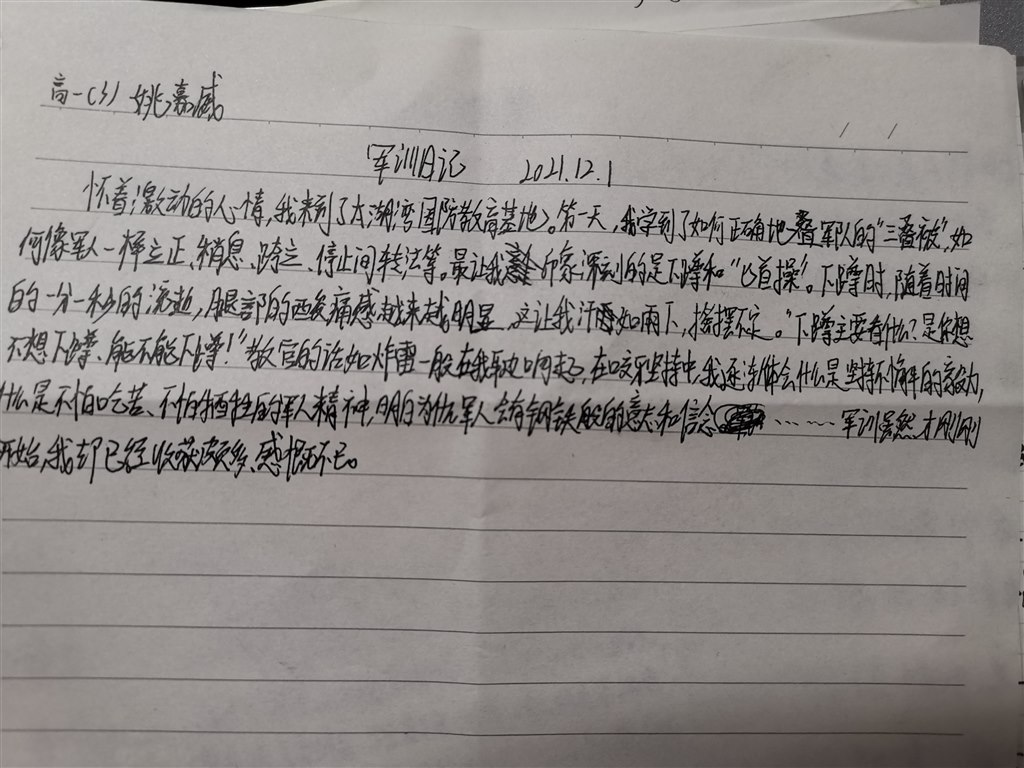 高一(3) 姚嘉威
军训日记 2021.12.1
怀着激动的心情,我来到了太湖湾国防教育基地。第一天,我学到了如何正确地叠军队的“三叠被”,如
何像军人一样立正、稍息、跨立、停止间转法等。最让我印象深刻的是下蹲和“匕首操”。下蹲时,随着时间
的一分一秒的流逝,腿部的酸痛感越来越明显,这让我汗如雨下,摇摆不定。“下蹲主要看什么?是你想
不想下蹲、能不能下蹲!”教官的话如炸雷一般在我耳边响起,在咬牙坚持中,我逐渐体会什么是坚持不懈的毅力,
什么是不怕吃苦、不怕牺牲的军人精神,明白为什么军人会有钢铁般的意志和信念…… 军训虽然才刚刚
开始,我却已经收获颇多、感慨不已。